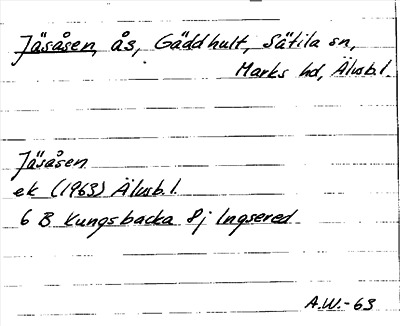 Jäsåsen, ås, Gäddhult, Sätila sn,
Marks hd, Älvsb.l.
Jäsåsen
ek (1963) Älvsb.l.
6 B Kungsbacka 8j Ingsered
A.W.-63